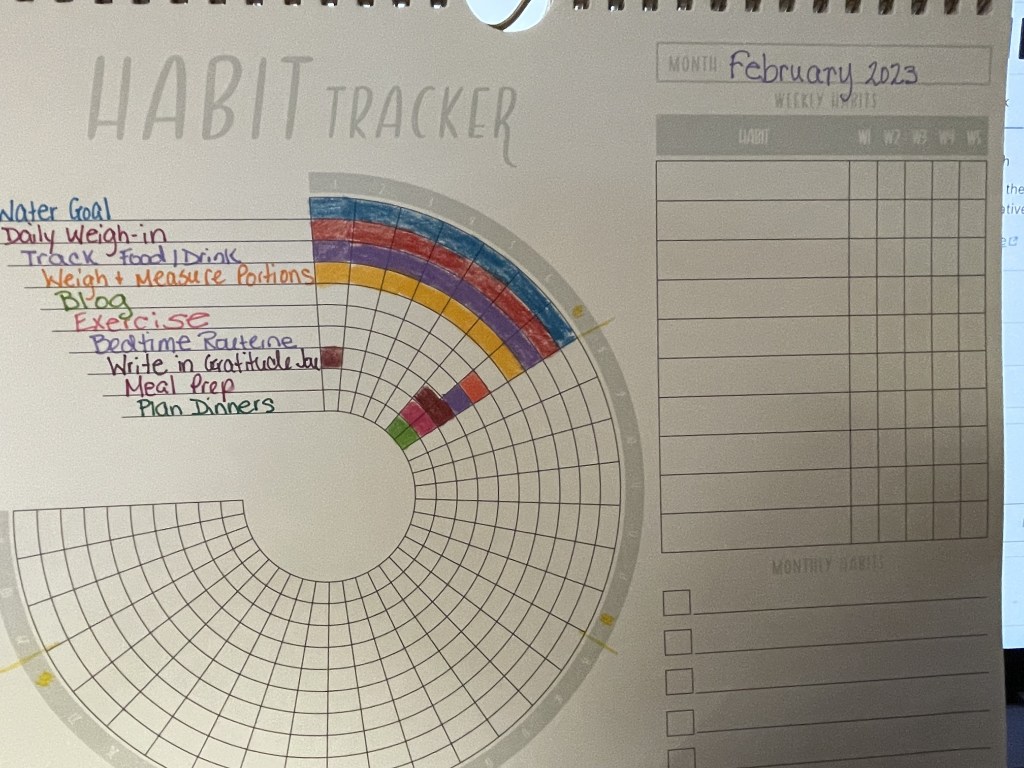 HABIT TRACKER
MONTH February 2023
WEEKLY HABITS
HABIT W1 W2 W3 W4 W5
Water Goal
Daily Weigh-in
Track Food/Drink
Weigh + Measure Portions
Blog
Exercise
Bedtime Routeine
Write in Gratitude Jou
Meal Prep
Plan Dinners
MONTHLY HABITS